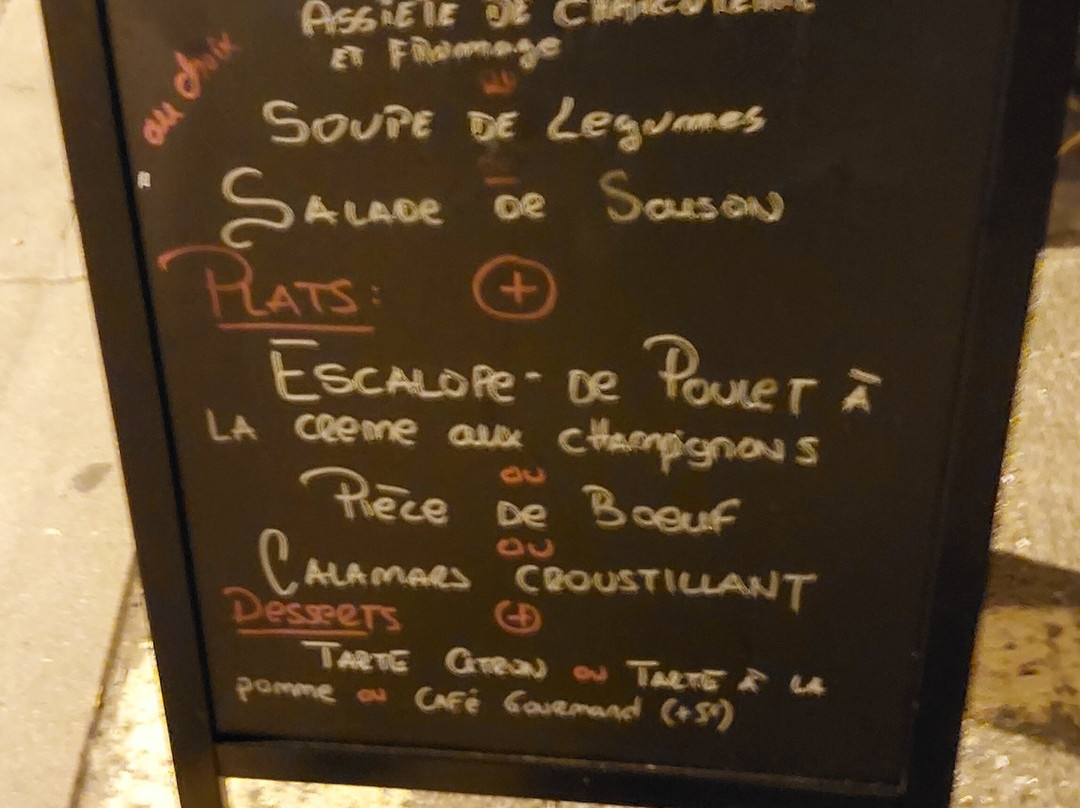 ASSIETE DE CHARCUTERIE
ET FROMAGE
au choix
ou
SOUPE DE Legumes
SALADE DE SAISON
PLATS: +
ESCALOPE DE POULET À
LA CREME aux CHAMPIGNONS
ou
PIÈCE DE BOEUF
OU
CALAMARS CROUSTILLANT
Desserts +
TARTE CITRON ou TARTE À LA
pomme ou CAFÉ Gourmand (+5€)